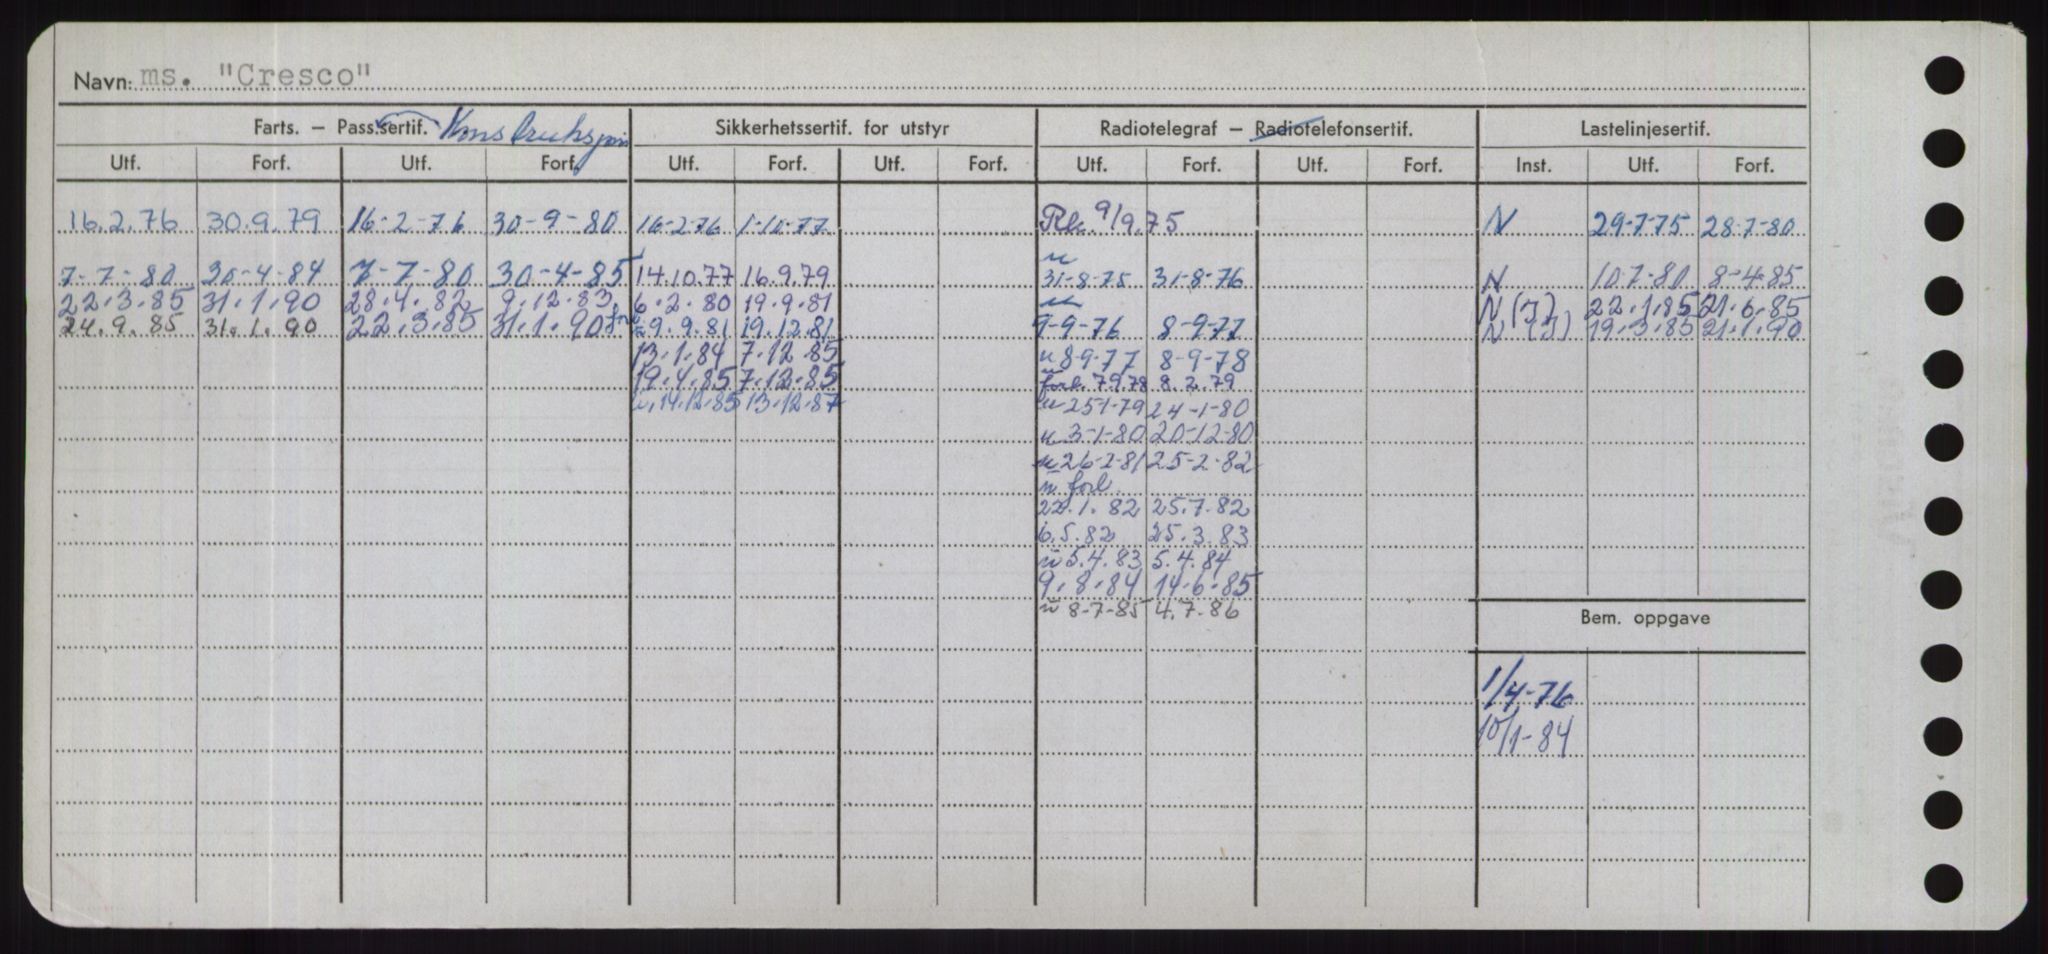 Navn: ms. "Cresco"
Farts. – Pass.sertif. Konstruksjons Sikkerhetssertif. for utstyr Radiotelegraf – Radiotelefonsertif. Lastelinjesertif.
Utf. Forf. Utf. Forf. Utf. Forf. Utf. Forf. Utf. Forf. Utf. Forf. Inst. Utf. Forf.
16.2.76 30.9.79 16-2-76 30-9-80 16-2-76 1-10-77 9/9.75 N 29-7-75 28-7-80
u
7-7-80 30-4-84 7-7-80 30-4-85 14.10.77 16.9.79 31-8-75 31-8-76 N 10-7-80 8-4-85
22.3.85 31.1.90 28.4.82 9.12.83 6.2.80 19.9.81 u N (J) 22.1.85 21.6.85
24.9.85 31.1.90 22.3.85 31.1.90 9.9.81 19.12.81 9-9-76 8-9-77 N (J) 19.3.85 21.1.90
13.1.84 7.12.85 u 8-9-77 8-9-78
19.4.85 7.12.85 forl. 7.9.78 8.2.79
u. 14.12.85 13.12.87 u 25-1-79 24-1-80
u 3-1-80 20-12-80
u 26-2-81 25-2-82
u forl.
22.1.82 25.7.82
6.5.82 25.3.83
u 5.4.83 5.4.84
9.8.84 14.6.85
u 8-7-85 4.7.86
Bem. oppgave
1/4-76
10/1-84